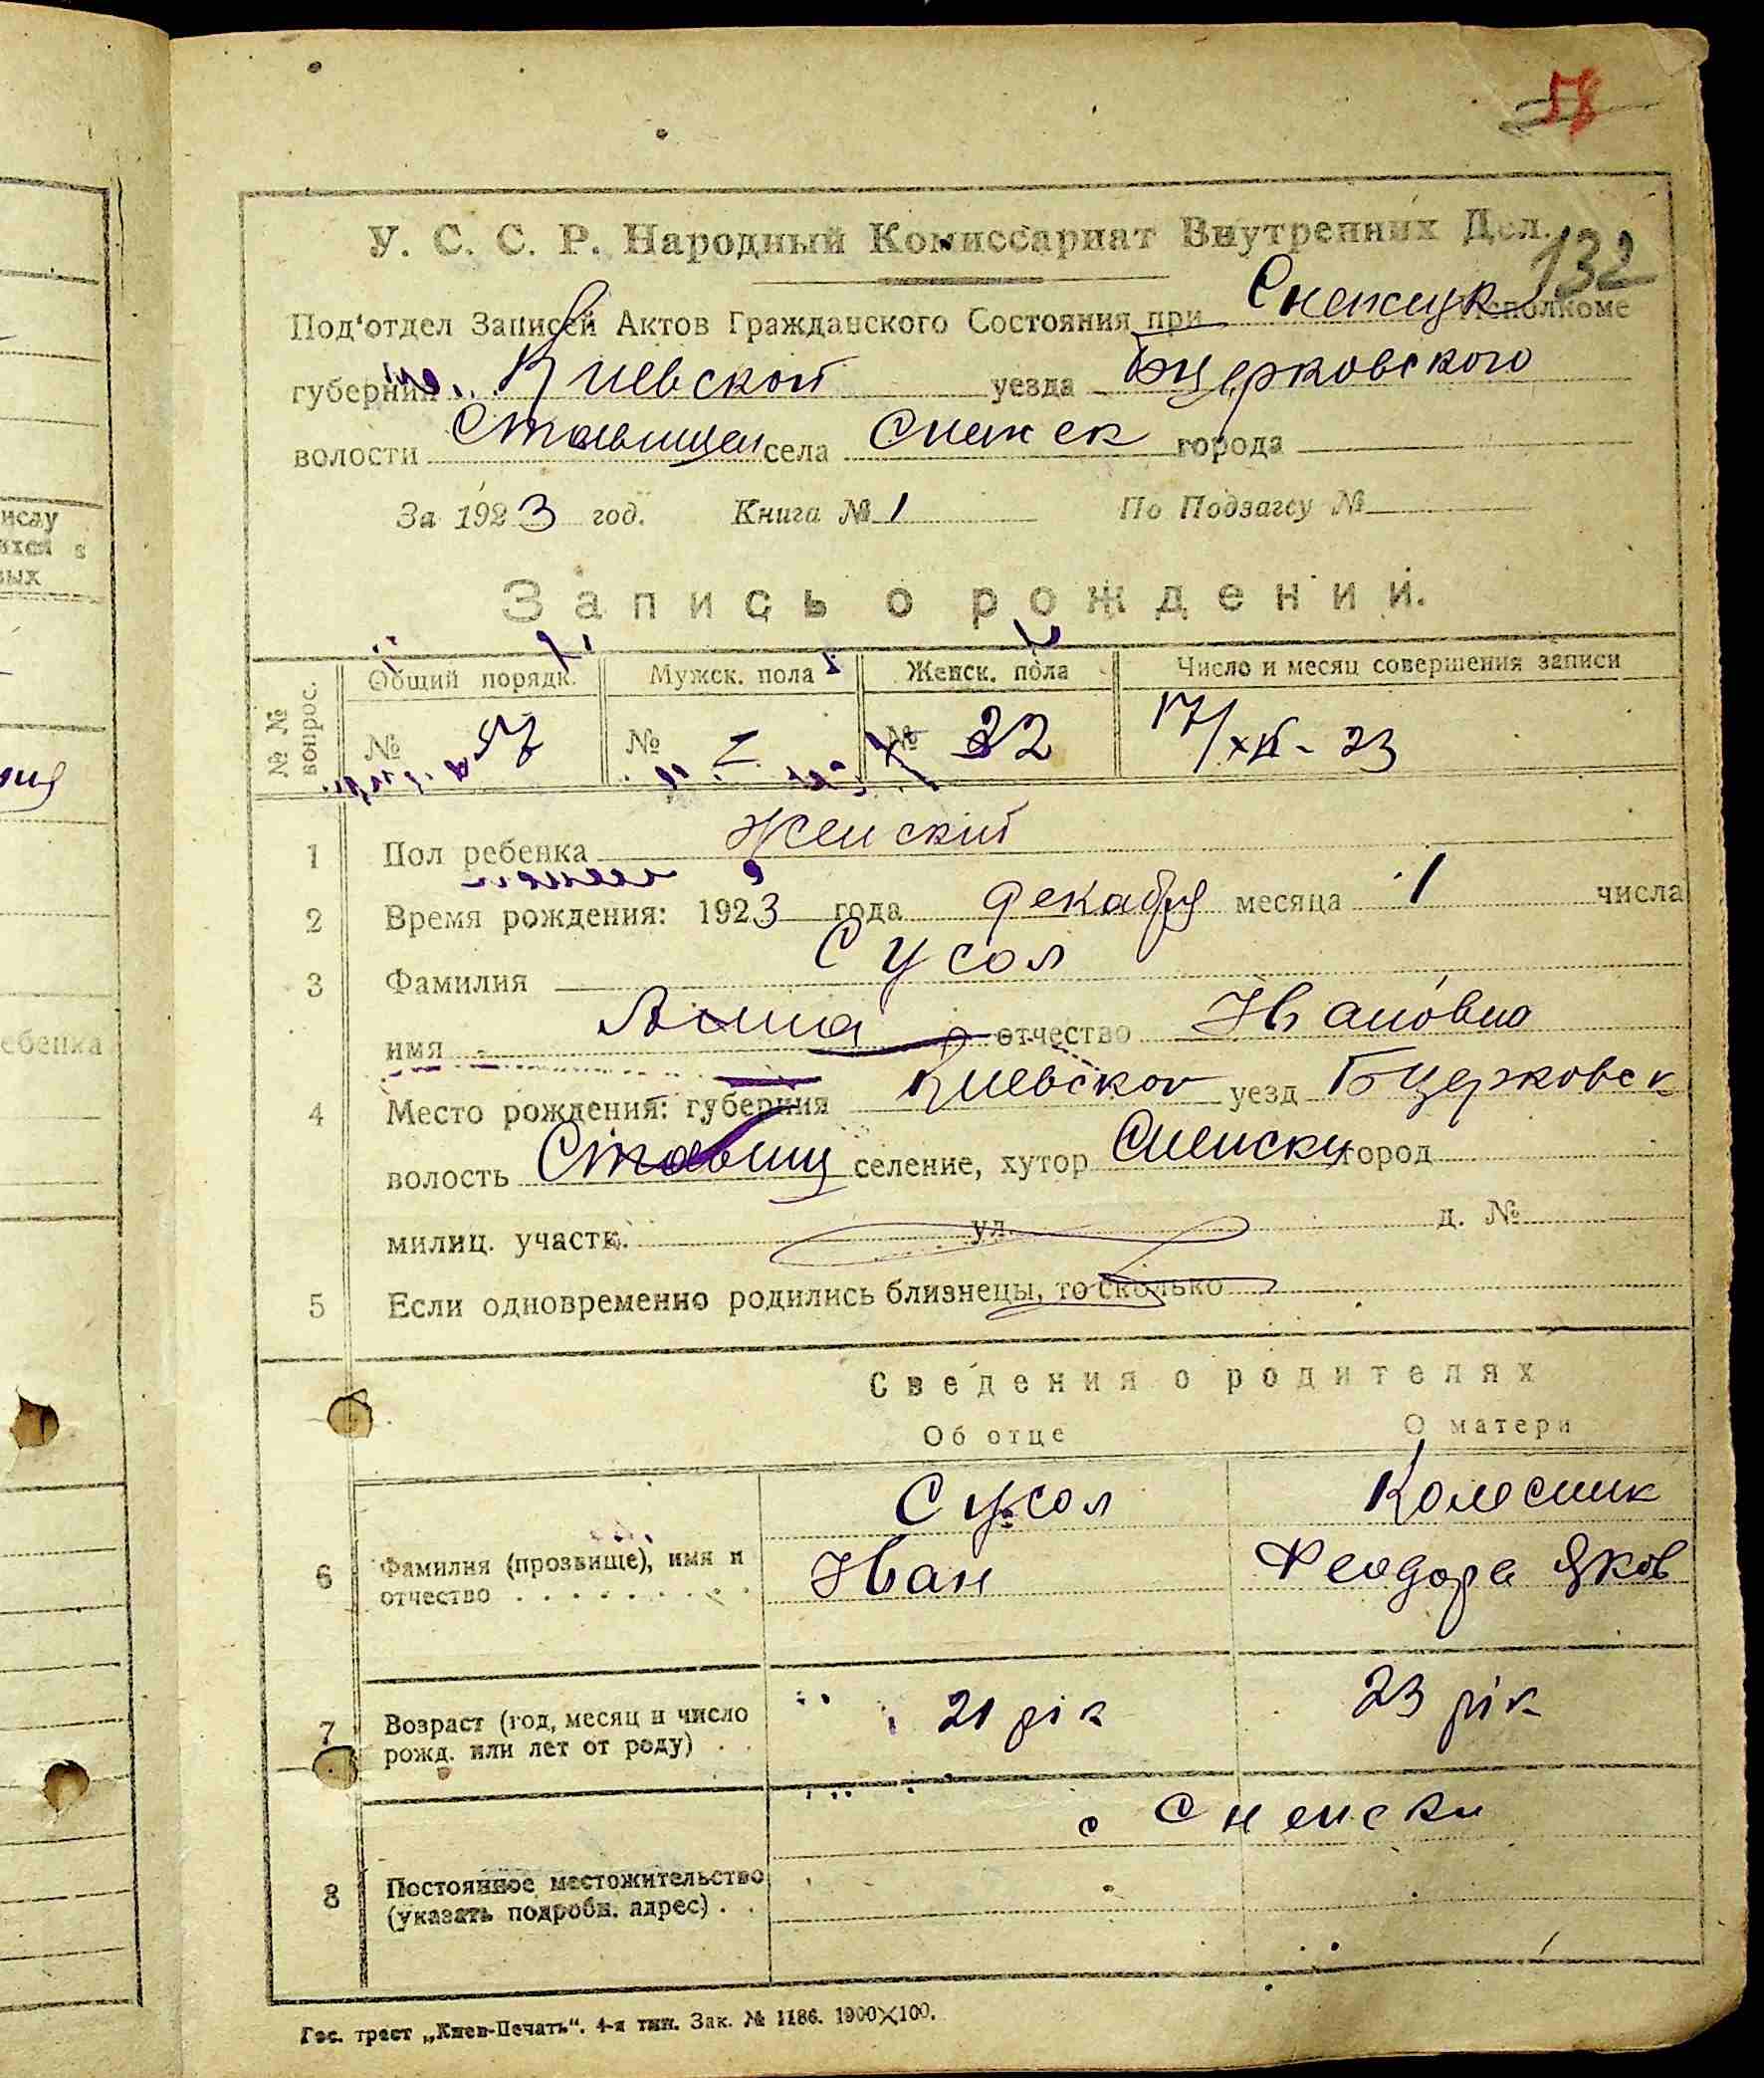 58
132
У. С. С. Р. Народный Комиссариат Внутренних Дел.
Под'отдел Записей Актов Гражданского Состояния при Снежицк Исполкоме
губернии Киевской уезда Бцерковского
волости Ставищен села Снежек города
За 1923 год. Книга № 1 По Подзагсу №
Запись о рождении.
№ № вопрос.
Общий порядк. Мужск. пола Женск. пола Число и месяц совершения записи
№ № № 32 17/XII - 23
1 Пол ребенка Женский
2 Время рождения: 1923 года декабря месяца 1 числа
3 Фамилия Сусол
имя Анна отчество Ивановна
4 Место рождения: губерния Киевской уезд Бцерковск
волость Ставищ селение, хутор город
милиц. участк. ул. д. №
5 Если одновременно родились близнецы, то сколько
Сведения о родителях
Об отце О матери
Сусол Колесник
6 Фамилия (прозвище), имя и отчество Иван Феодора Яков
7 Возраст (год, месяц и число рожд. или лет от роду) 21 рік 23 рік
с
8 Постоянное местожительство (указать подробн. адрес)
Гос. трест „Киев-Печать". 4-я тип. Зак. № 1186. 1900×100.
ебенка